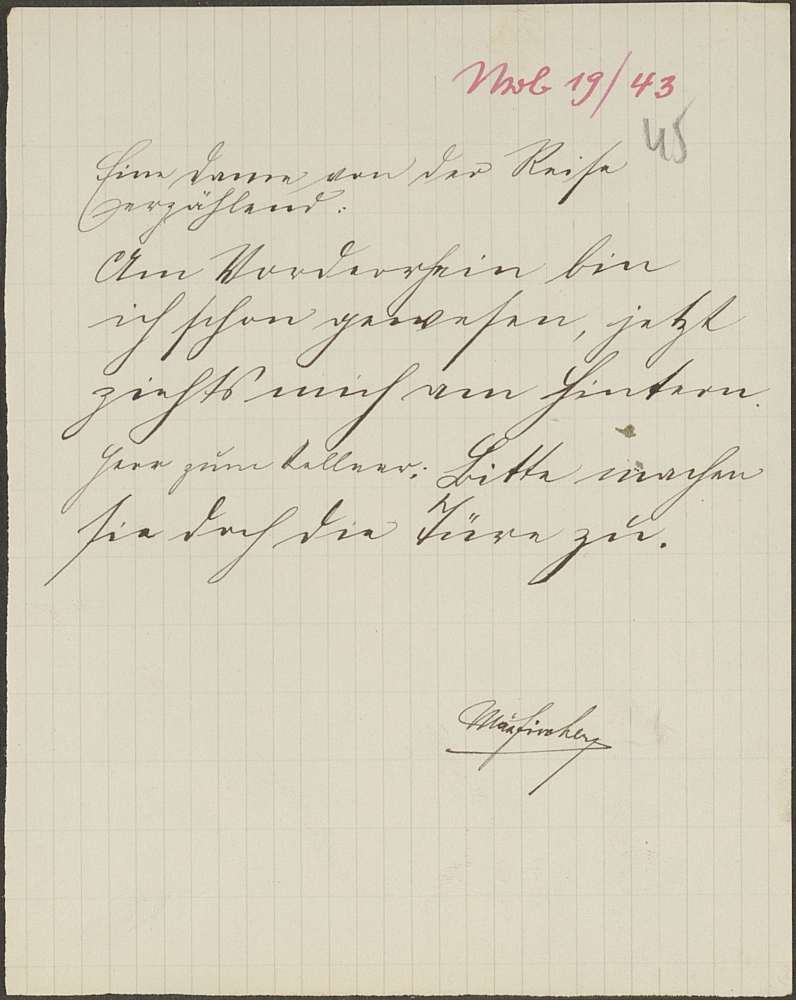 Nob 19/43
45
Eine Dame von der Reise
erzählend:
Am Vorderrhein bin
ich schon gewesen, jetzt
ziehts mich am Hintern.
Herr zum Kellner: Bitte machen
sie doch die Türe zu.